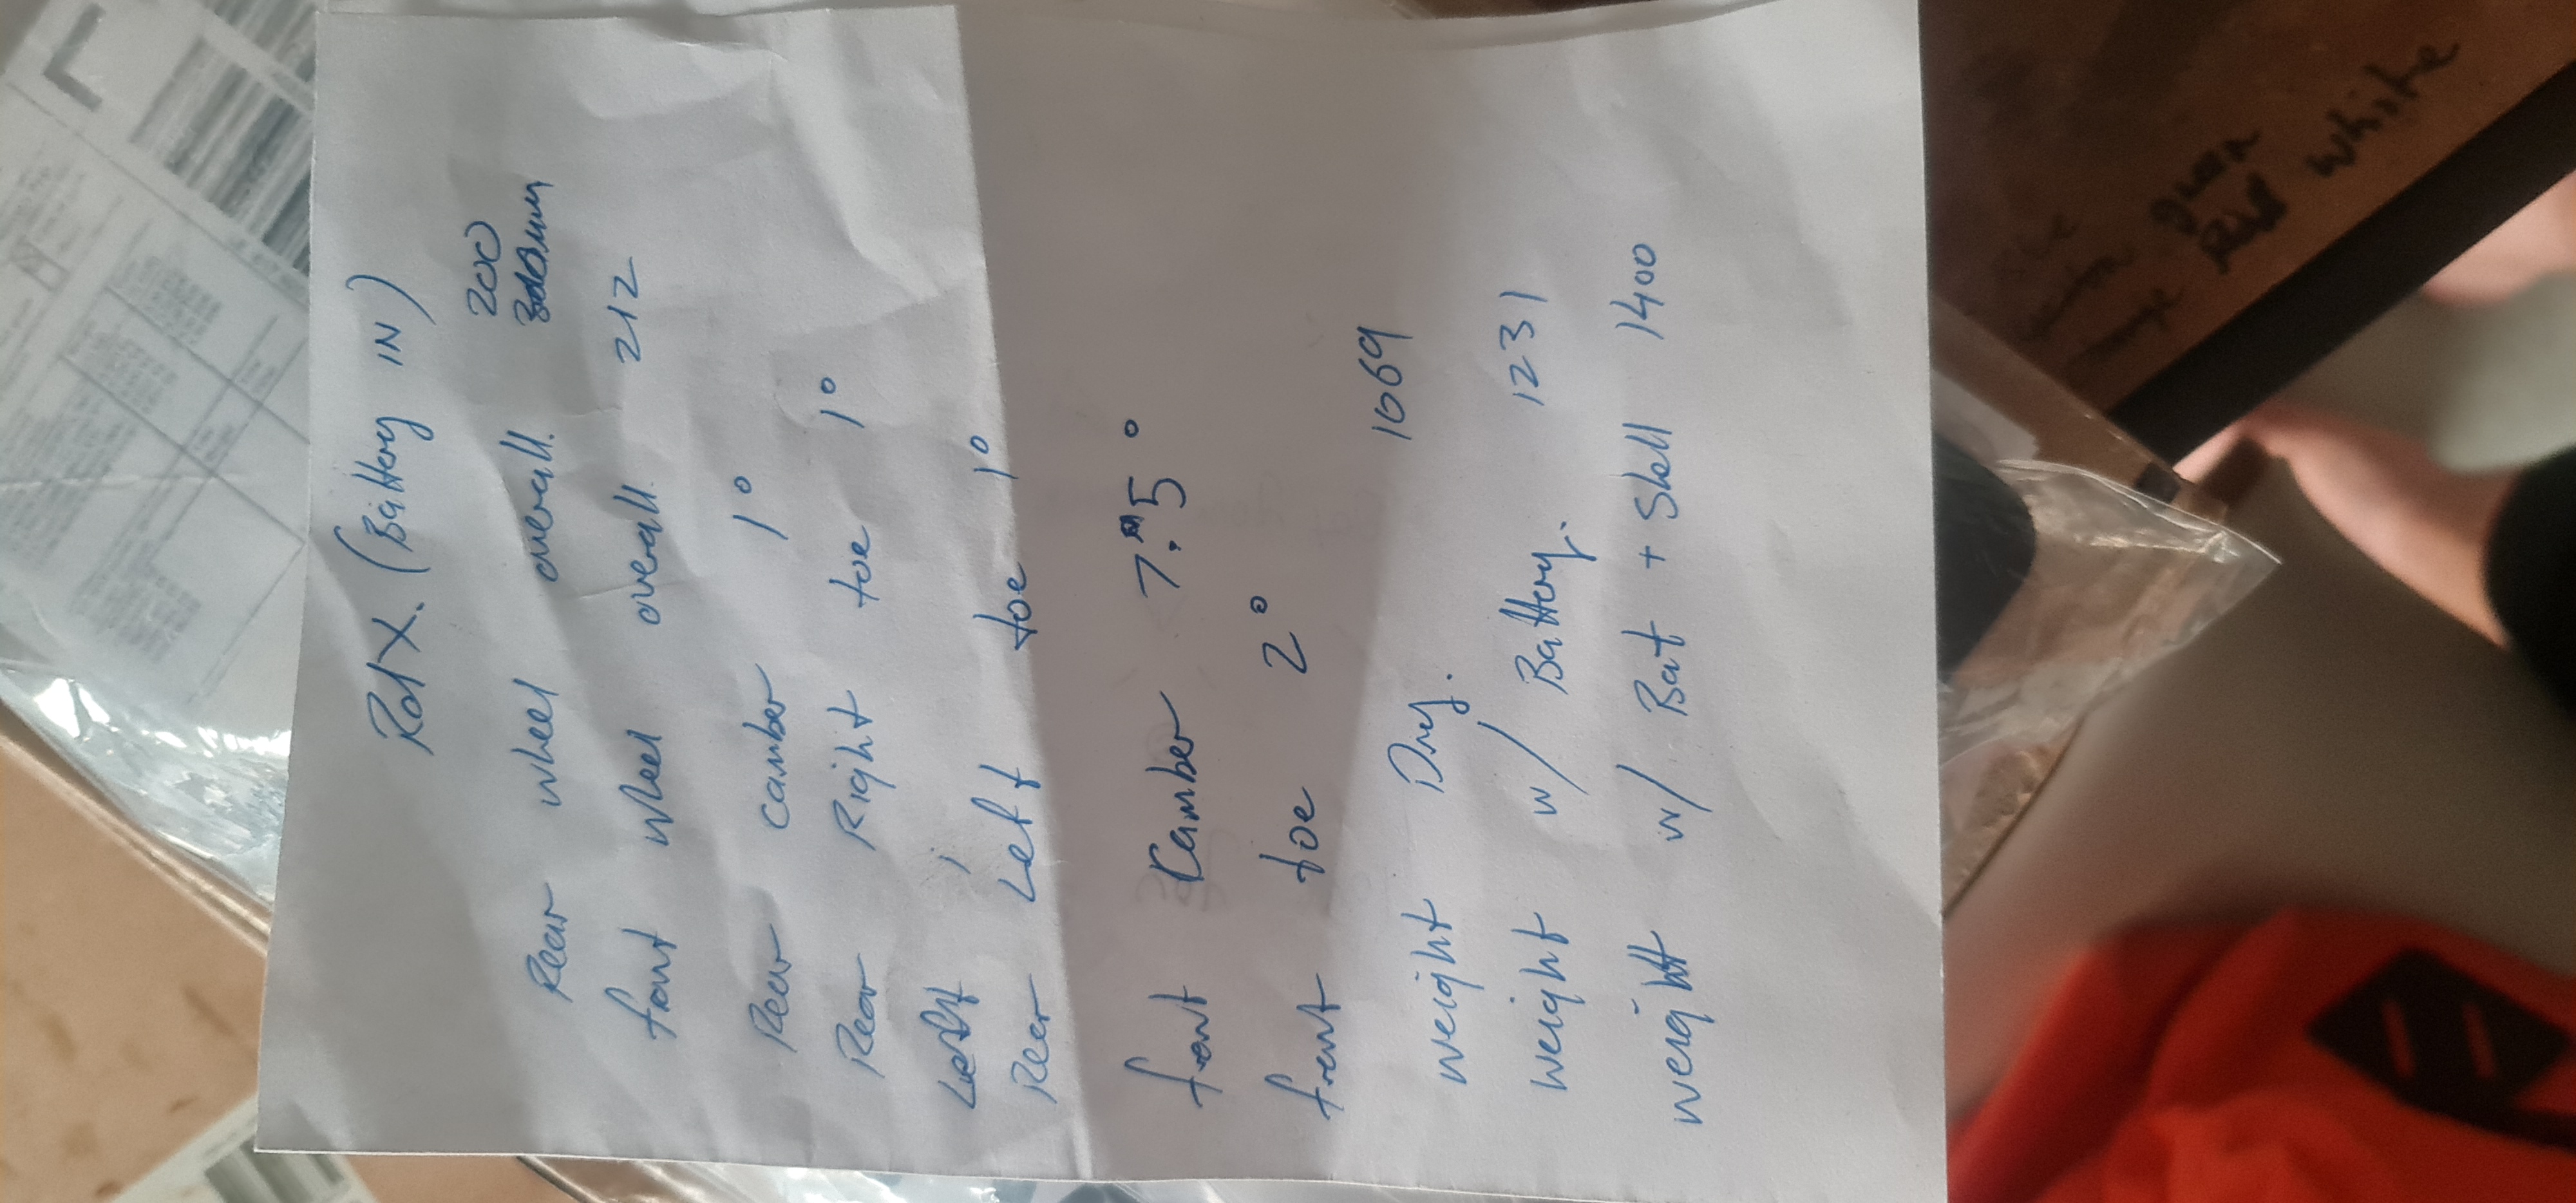 RdX. (Battery IN)
200
Rear wheel overall. 300mm
front wheel overall. 212
Rear camber 1°
Rear Right toe 1°
Left
Reer Left toe 1°
front Camber 7.5°
front toe 2°
weight Dry. 1069
weight w/ Battery. 1231
weight w/ Bat + Shell 1400
green
Red white